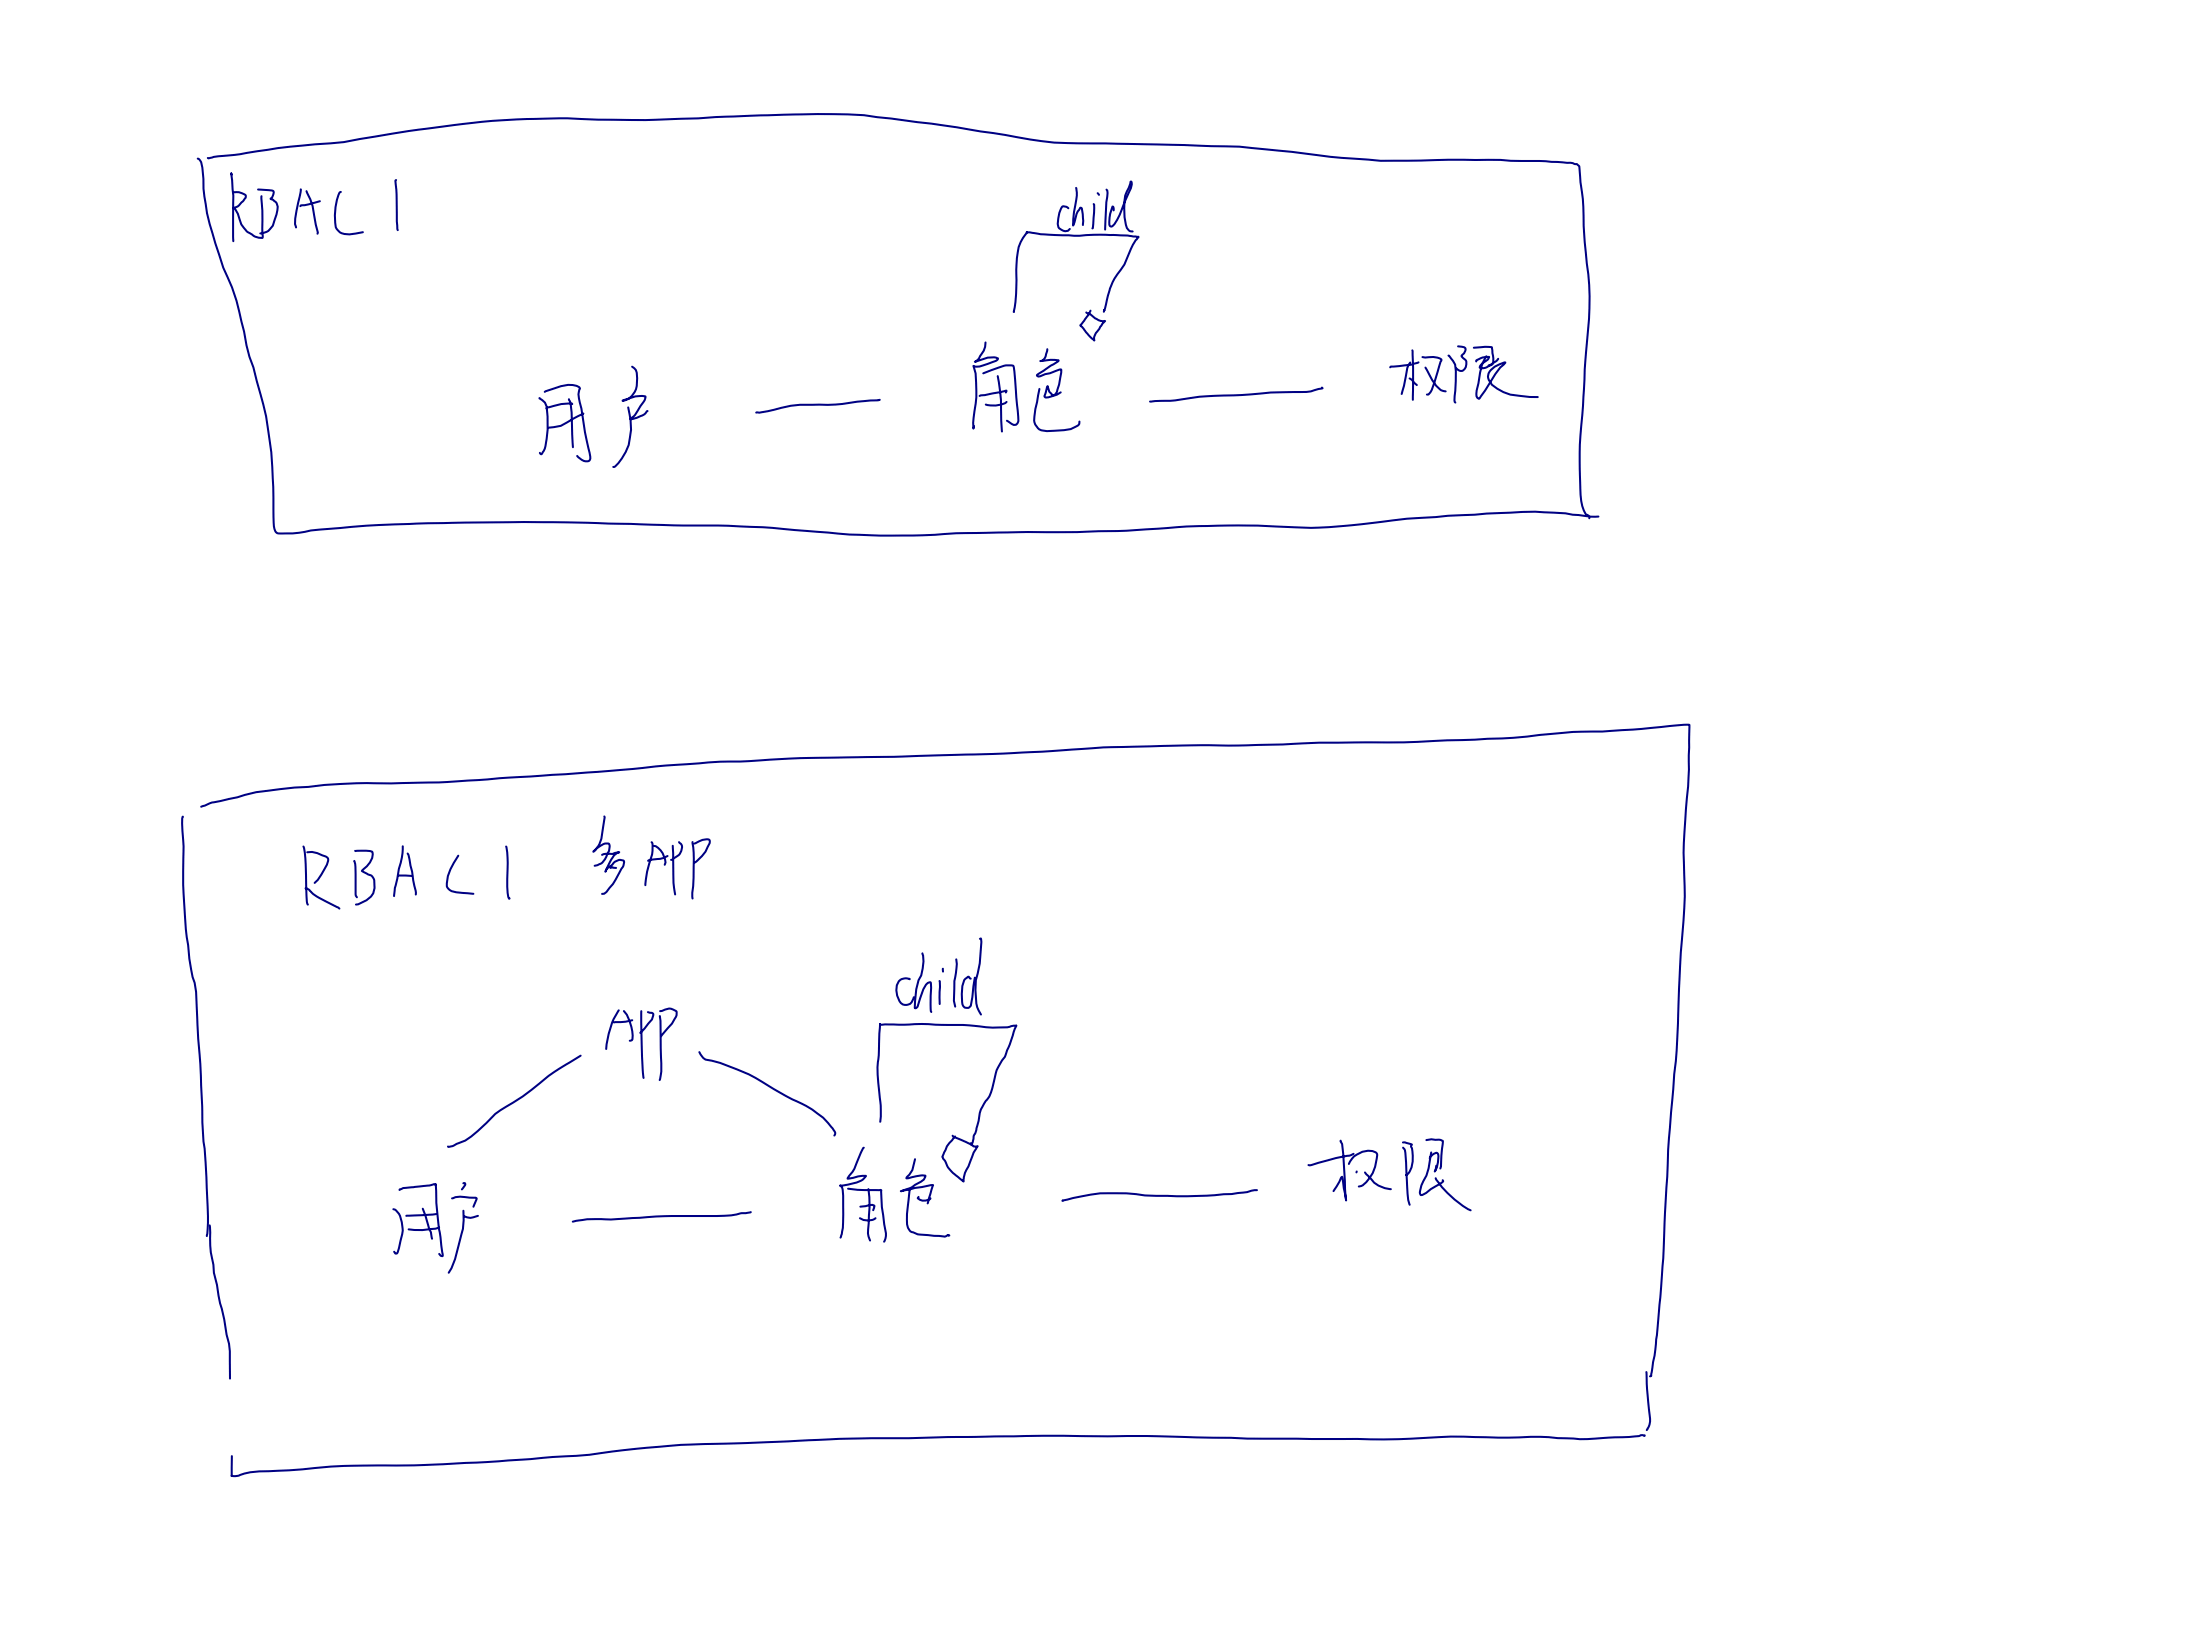 RBAC1
child
用户 角色 权限
RBAC1 多APP
child
APP
用户 角色 权限